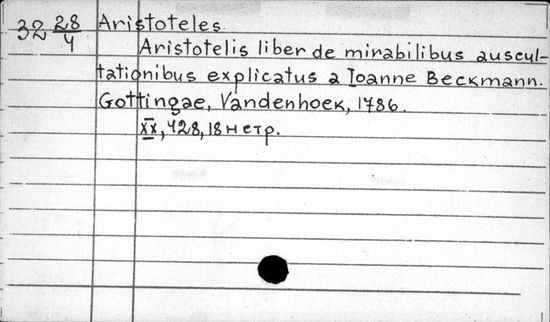 32 28/4 Aristoteles.
Aristotelis liber de mirabilibus auscul-
tationibus explicatus a Ioanne Beckmann.
Gottingae, Vandenhoek, 1786.
XX, 428, 18 н стр.